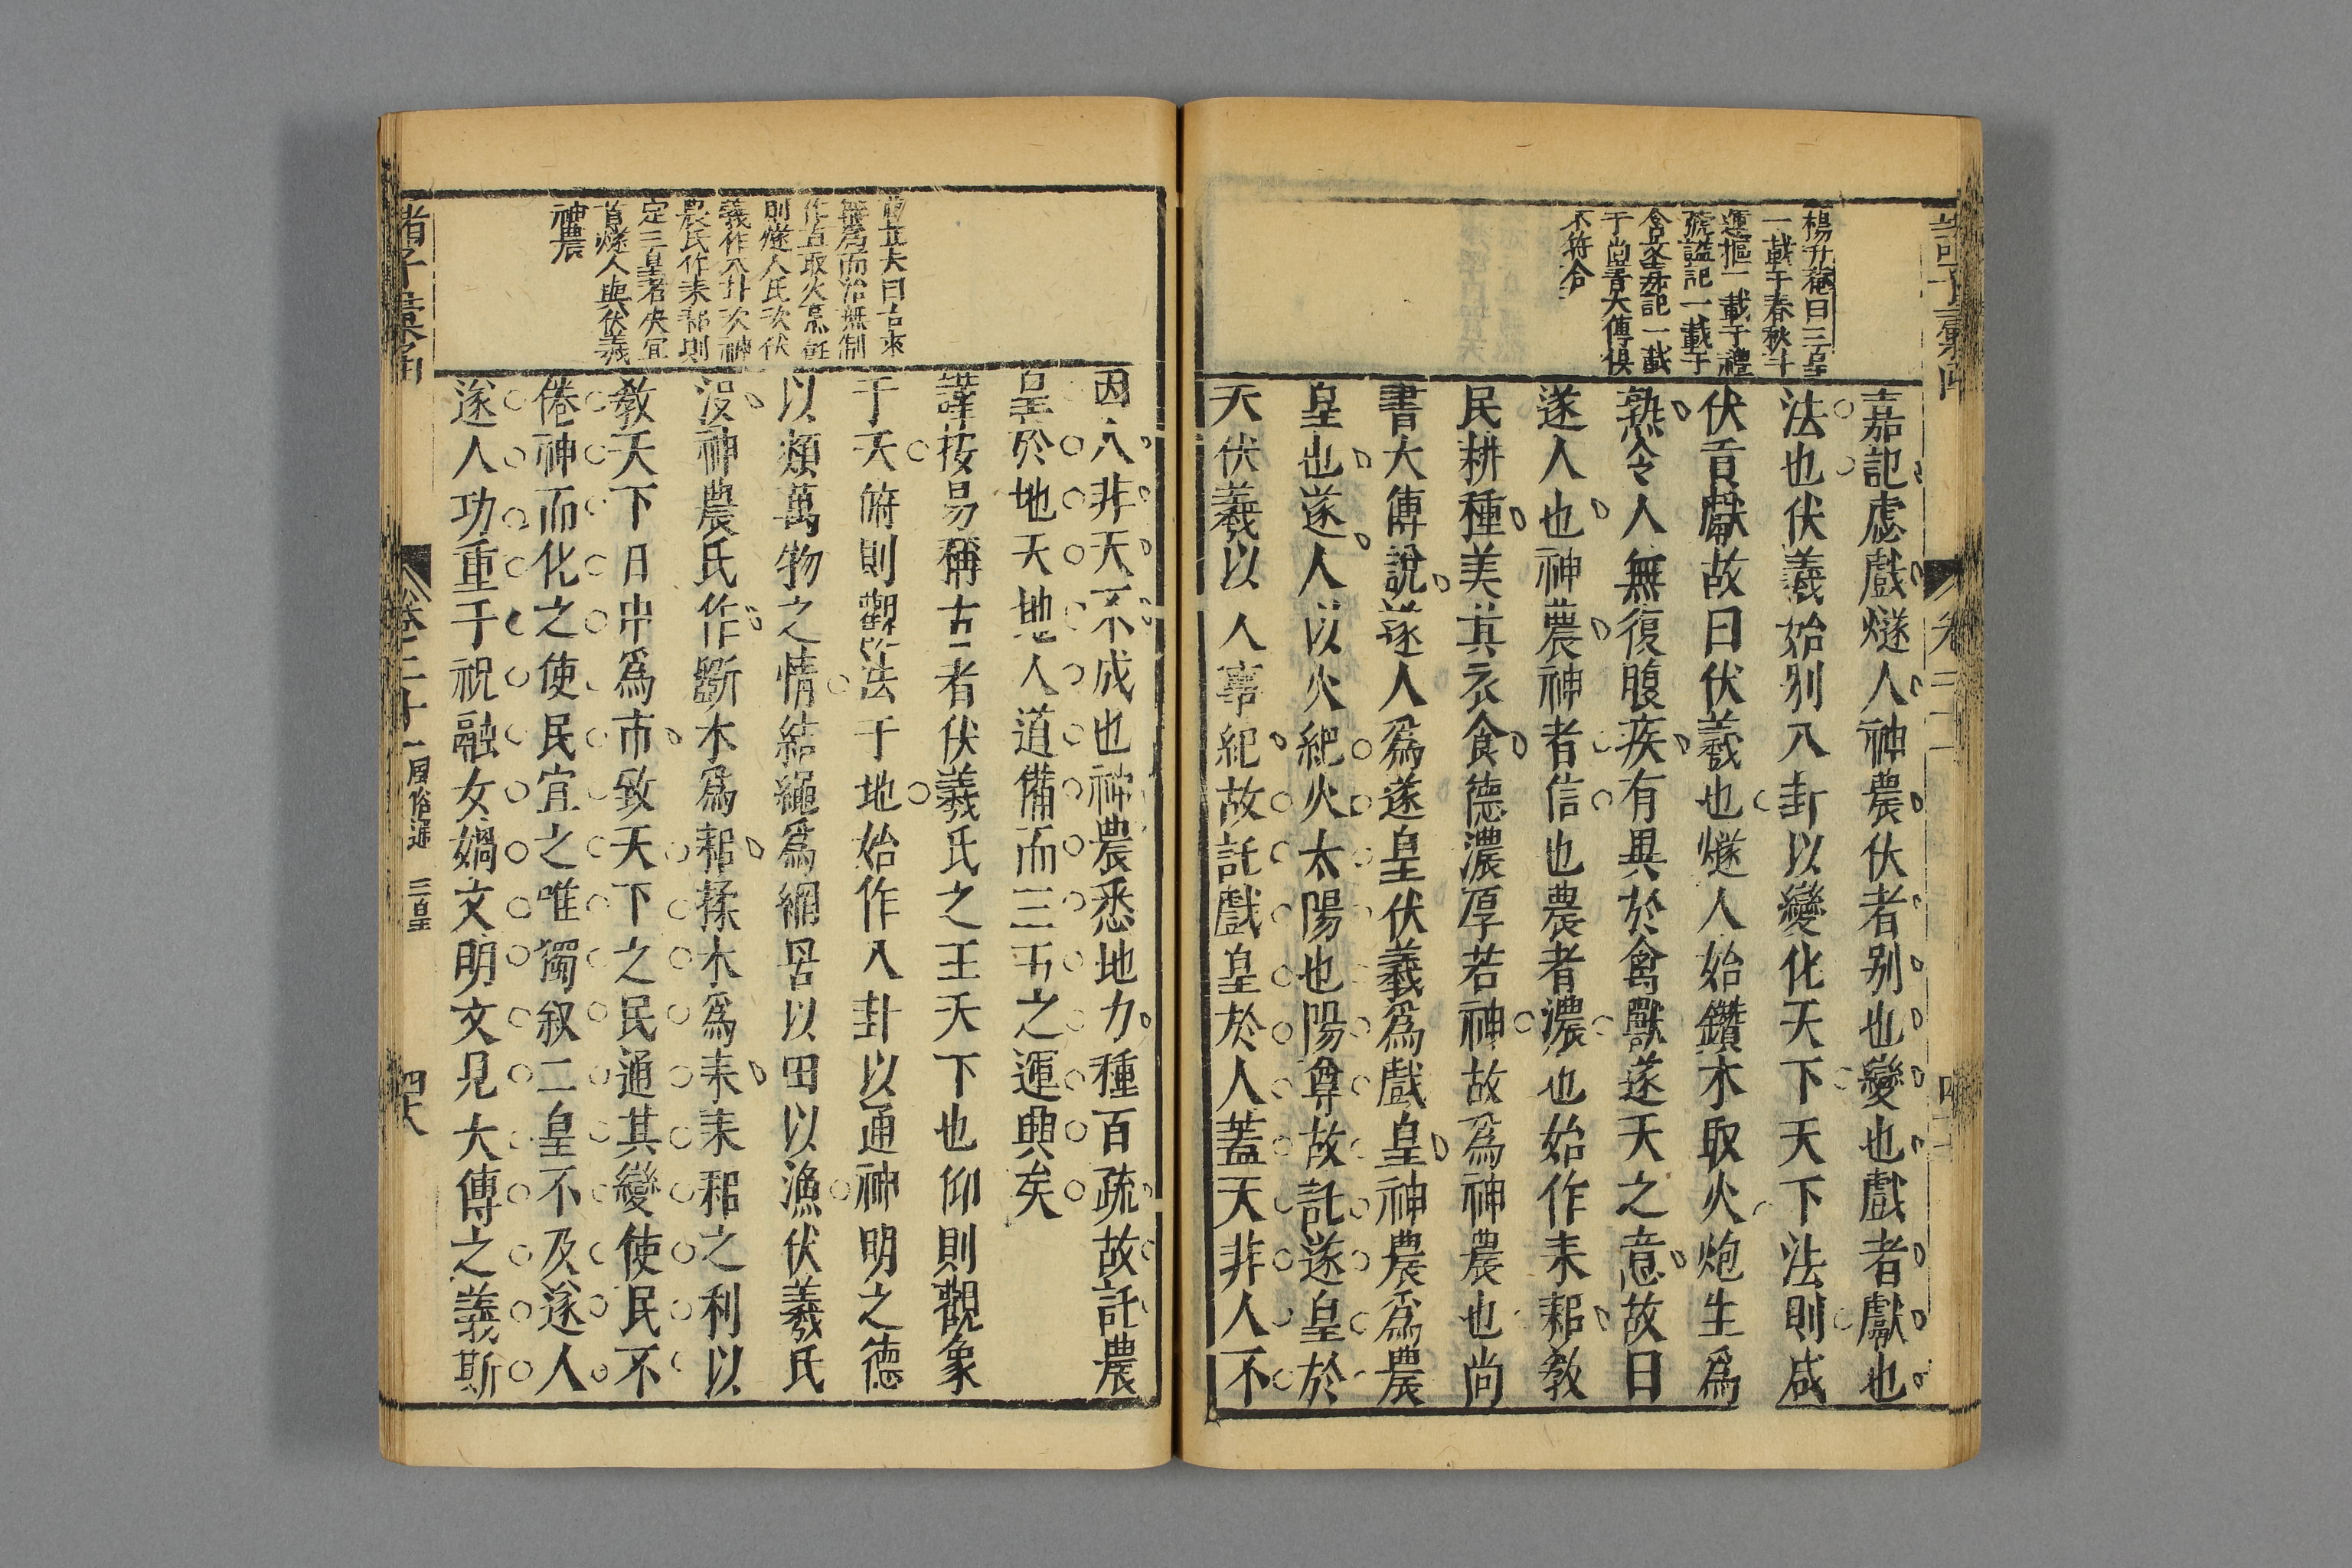 楊升菴曰三皇
一載于春秋斗
運樞一載于禮
號謚記一載于
含文嘉記一載
于尚書大傳俱
不符合
嘉記虙戲燧人神農伏者别也變也戲者獻也
法也伏羲始别八卦以變化天下天下法則咸
伏貢獻故曰伏羲也燧人始鑽木取火炮生爲
熟令人無復腹疾有異於禽獸遂天之意故曰
遂人也神農神者信也農者濃也始作耒耜敎
民耕種美其衣食德濃厚若神故爲神農也尚
書大傳說遂人爲遂皇伏羲爲戲皇神農爲農
皇也遂人以火紀火太陽也陽尊故託遂皇於
天伏羲以人事紀故託戲皇於人蓋天非人不
因人非天不成也神農悉地力種百疏故託農
皇於地天地人道備而三五之運興矣
謹按易稱古者伏羲氏之王天下也仰則觀象
于天俯則觀法于地始作八卦以通神明之德
以類萬物之情結繩爲網罟以田以漁伏羲氏
沒神農氏作斵木爲耜揉木爲耒耒耜之利以
敎天下日中爲市致天下之民通其變使民不
倦神而化之使民宜之唯獨叙二皇不及遂人
遂人功重于祝融女媧文明文見大傳之義斯
曰古來
無爲而治無制
作自取火烹飪
則燧人氏次伏
羲作八卦次神
農氏作耒耜則
定三皇者央宜
首燧人與伏羲
神農
諸子彙函
卷二十一
風俗通 三皇